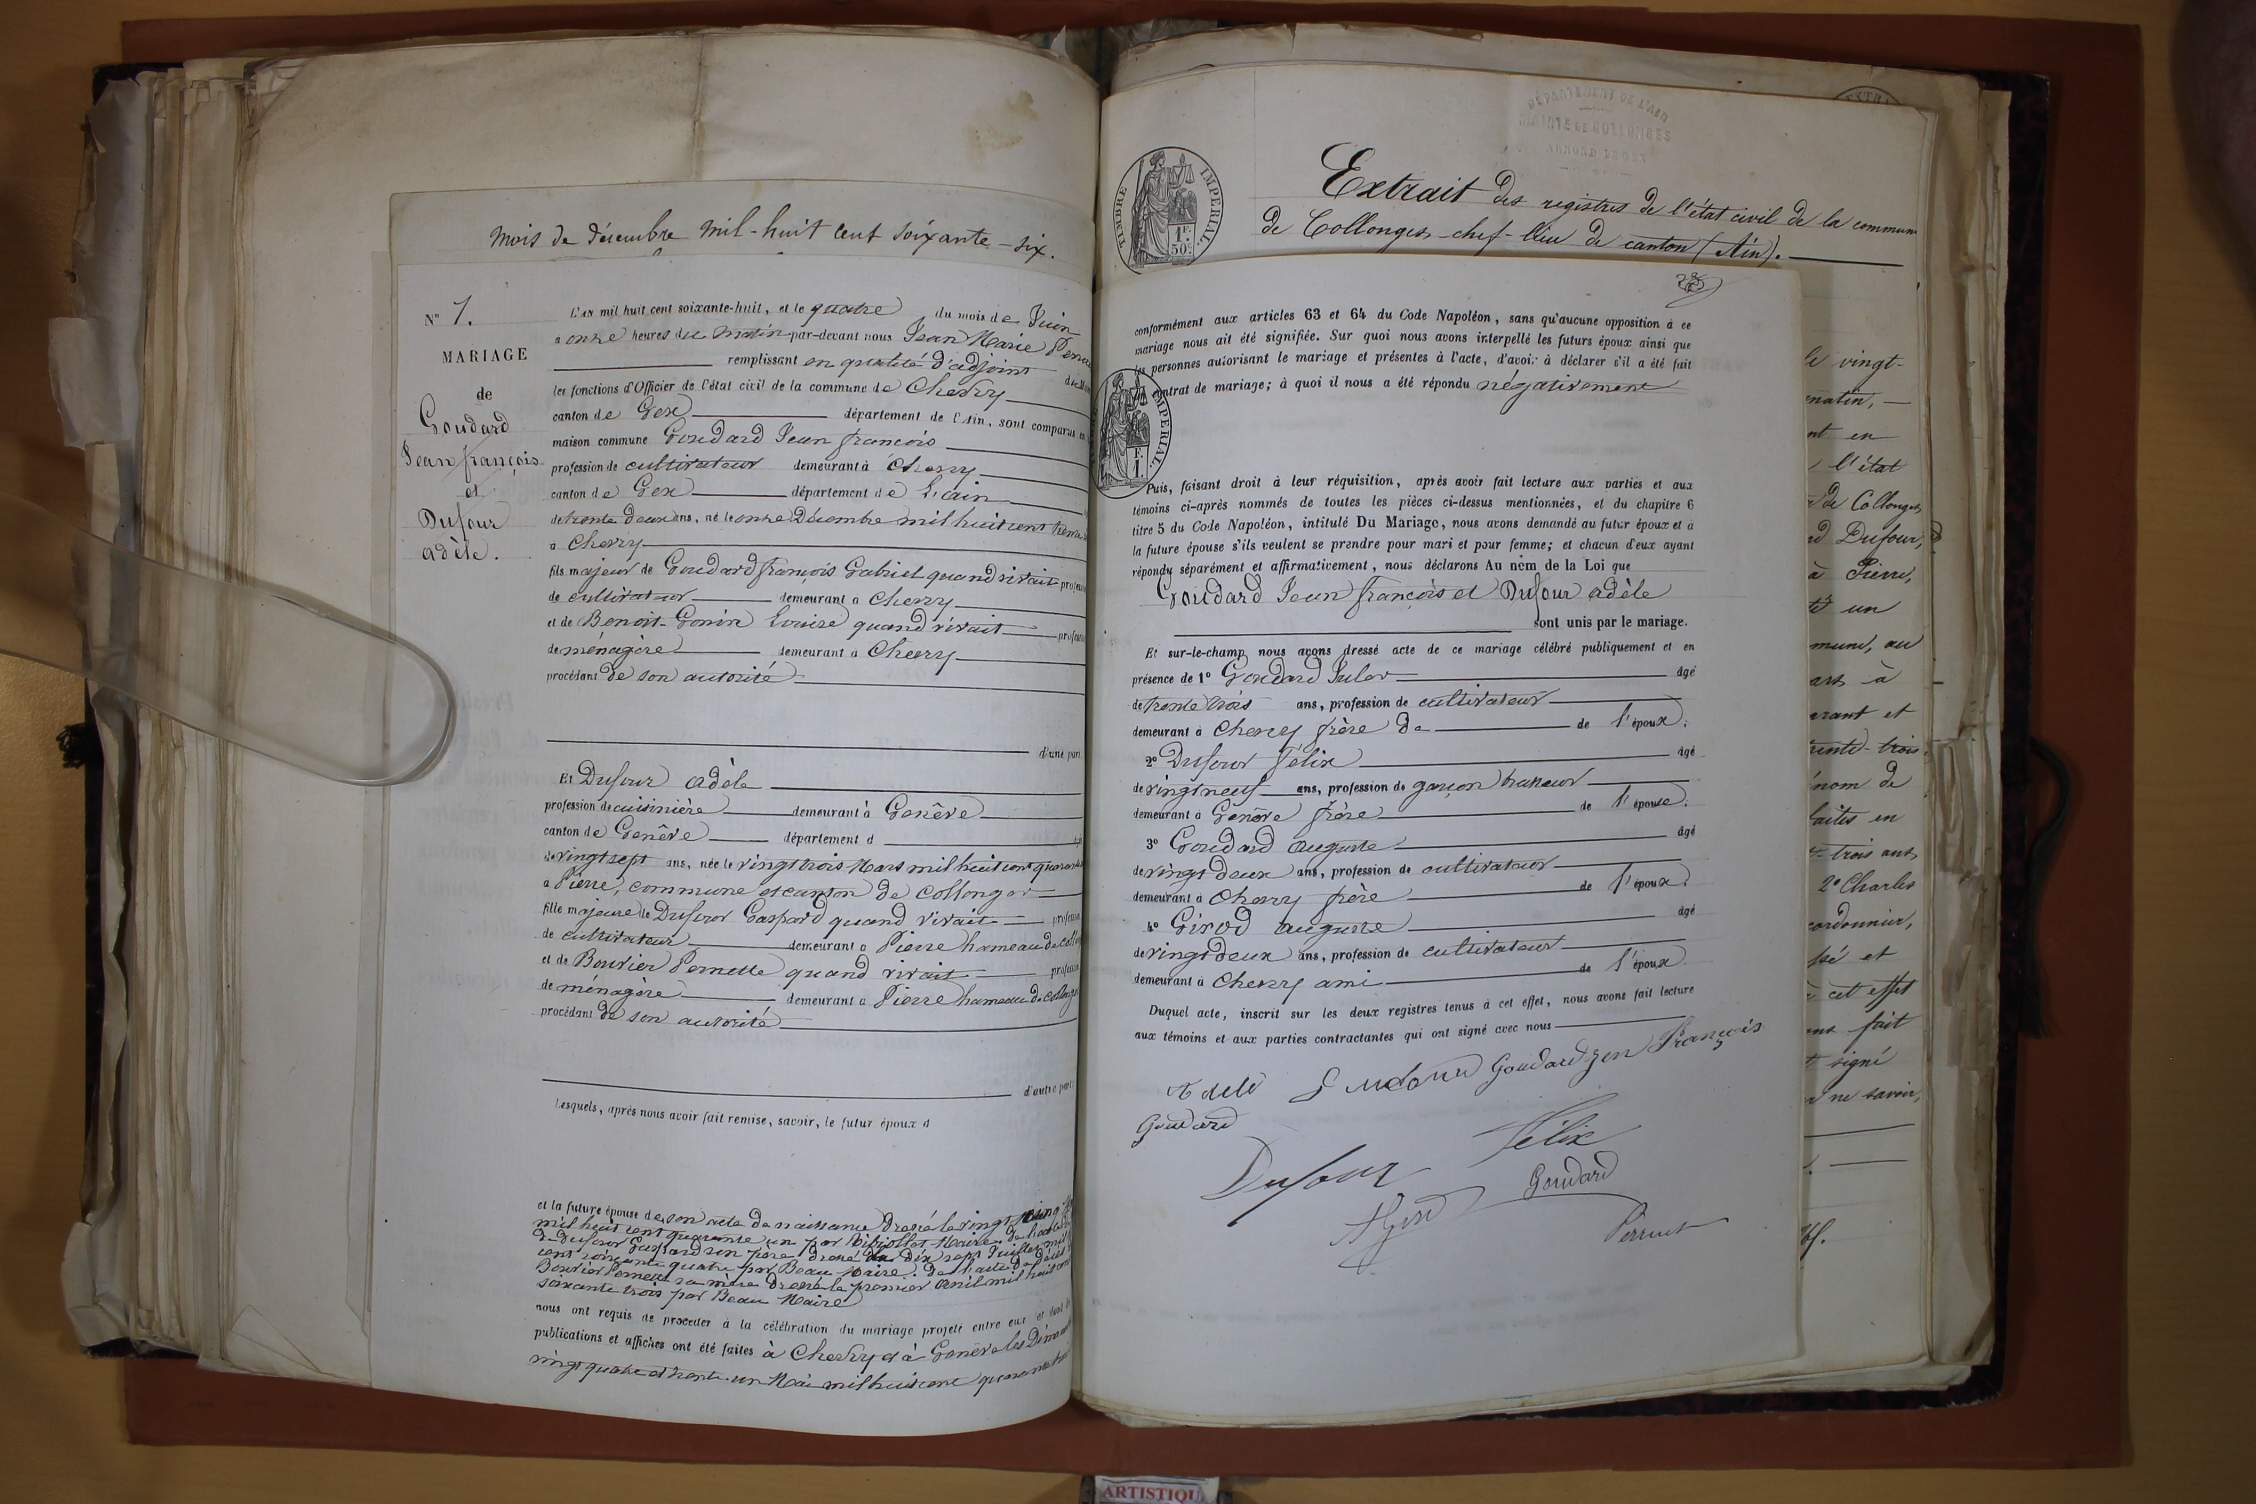 mois de décembre mil-huit cent soixante-six.
N° 7.
MARIAGE
de
Goudard
Jean françois
et
Dufour
adèle.
L'AN mil huit cent soixante-huit, et le quatre du mois de Juin
à onze heures du matin par-devant nous Jean Marie
remplissant en qualité d'adjoint
les fonctions d'Officier de l'état civil de la commune de Chevry
canton de Gex département de l'Ain, sont comparus en
maison commune Goudard Jean françois
profession de cultivateur demeurant à Chevry
canton de Gex département de L'ain
de trente deux ans, né le onze Décembre mil huit cent
à Chevry
fils majeur de Goudard françois Gabriel quand vivait
de cultivateur demeurant à Chevry
et de Benoit-Gonin Louise quand vivait
de ménagère demeurant à Chevry
procédant de son autorité
d'une part
Et Dufour adèle
profession de cuisinière demeurant à Genêve
canton de Genêve département d
de vingt sept ans, née le vingt trois Mars mil huit cent
à Pierre, commune et canton de Collonges
fille majeure de Dufour Gaspard quand vivait
de cultivateur demeurant à Pierre hameau de
et de Bouvier Pernette quand vivait
de ménagère demeurant à Pierre hameau de
procédant de son autorité
d'autre part
Lesquels, après nous avoir fait remise, savoir, le futur époux d
et la future épouse de son acte de naissance Dressé le vingt
mil huit cent quarante un par Maire. de l'acte
de dufour Gaspard son père dressé dix sept Juillet mil
cent soixante quatre par Beau Maire. de l'acte de décès
Bouvier Pernette sa mère dressé le premier avril mil huit cent
soixante trois par Beau Maire
nous ont requis de procéder à la célébration du mariage projeté entre eux et dont
publications et affiches ont été faites à Chevry et à Genêve les
vingt quatre et trente-un Mai mil huit cent
DÉPARTEMENT DE L'AIN
MAIRIE DE COLLONGES
TIMBRE IMPERIAL.
1F.
50c.
Extrait des registres de l'état civil de la commune
de Collonges chef-lieu de canton (Ain).
conformément aux articles 63 et 64 du Code Napoléon, sans qu'aucune opposition à ce
mariage nous ait été signifiée. Sur quoi nous avons interpellé les futurs époux ainsi que
les personnes autorisant le mariage et présentes à l'acte, d'avoir à déclarer s'il a été fait
contrat de mariage; à quoi il nous a été répondu négativement
Puis, faisant droit à leur réquisition, après avoir fait lecture aux parties et aux
témoins ci-après nommés de toutes les pièces ci-dessus mentionnées, et du chapitre 6
titre 5 du Code Napoléon, intitulé Du Mariage, nous avons demandé au futur époux et à
la future épouse s'ils veulent se prendre pour mari et pour femme; et chacun d'eux ayant
répondu séparément et affirmativement, nous déclarons Au nom de la Loi que
Goudard Jean françois et Dufour adèle
sont unis par le mariage.
Et sur-le-champ nous avons dressé acte de ce mariage célébré publiquement et en
présence de 1° Goudard Jules âgé
de trente trois ans, profession de cultivateur
demeurant à Chevry frère de de l'époux.
2° Dufour félix âgé
de vingt neuf ans, profession de garçon
demeurant à Genêve frère de l'épouse.
3° Goudard auguste âgé
de vingt deux ans, profession de cultivateur
demeurant à Chevry frère de l'époux.
4° Girod auguste âgé
de vingt deux ans, profession de cultivateur
demeurant à Chevry ami de l'époux.
Duquel acte, inscrit sur les deux registres tenus à cet effet, nous avons fait lecture
aux témoins et aux parties contractantes qui ont signé avec nous
Goudard jen François
Goudard
Dufour Félix
Goudard
le vingt-
matin,
nt en
l'état
de Collonges
Dufour,
à Pierre,
un
mune, au
à
rant et
trois
nom de
faites en
trois ans,
2° Charles
cordonnier,
et
à cet effet
fait
signé
ne savoir,
ARTISTIQU